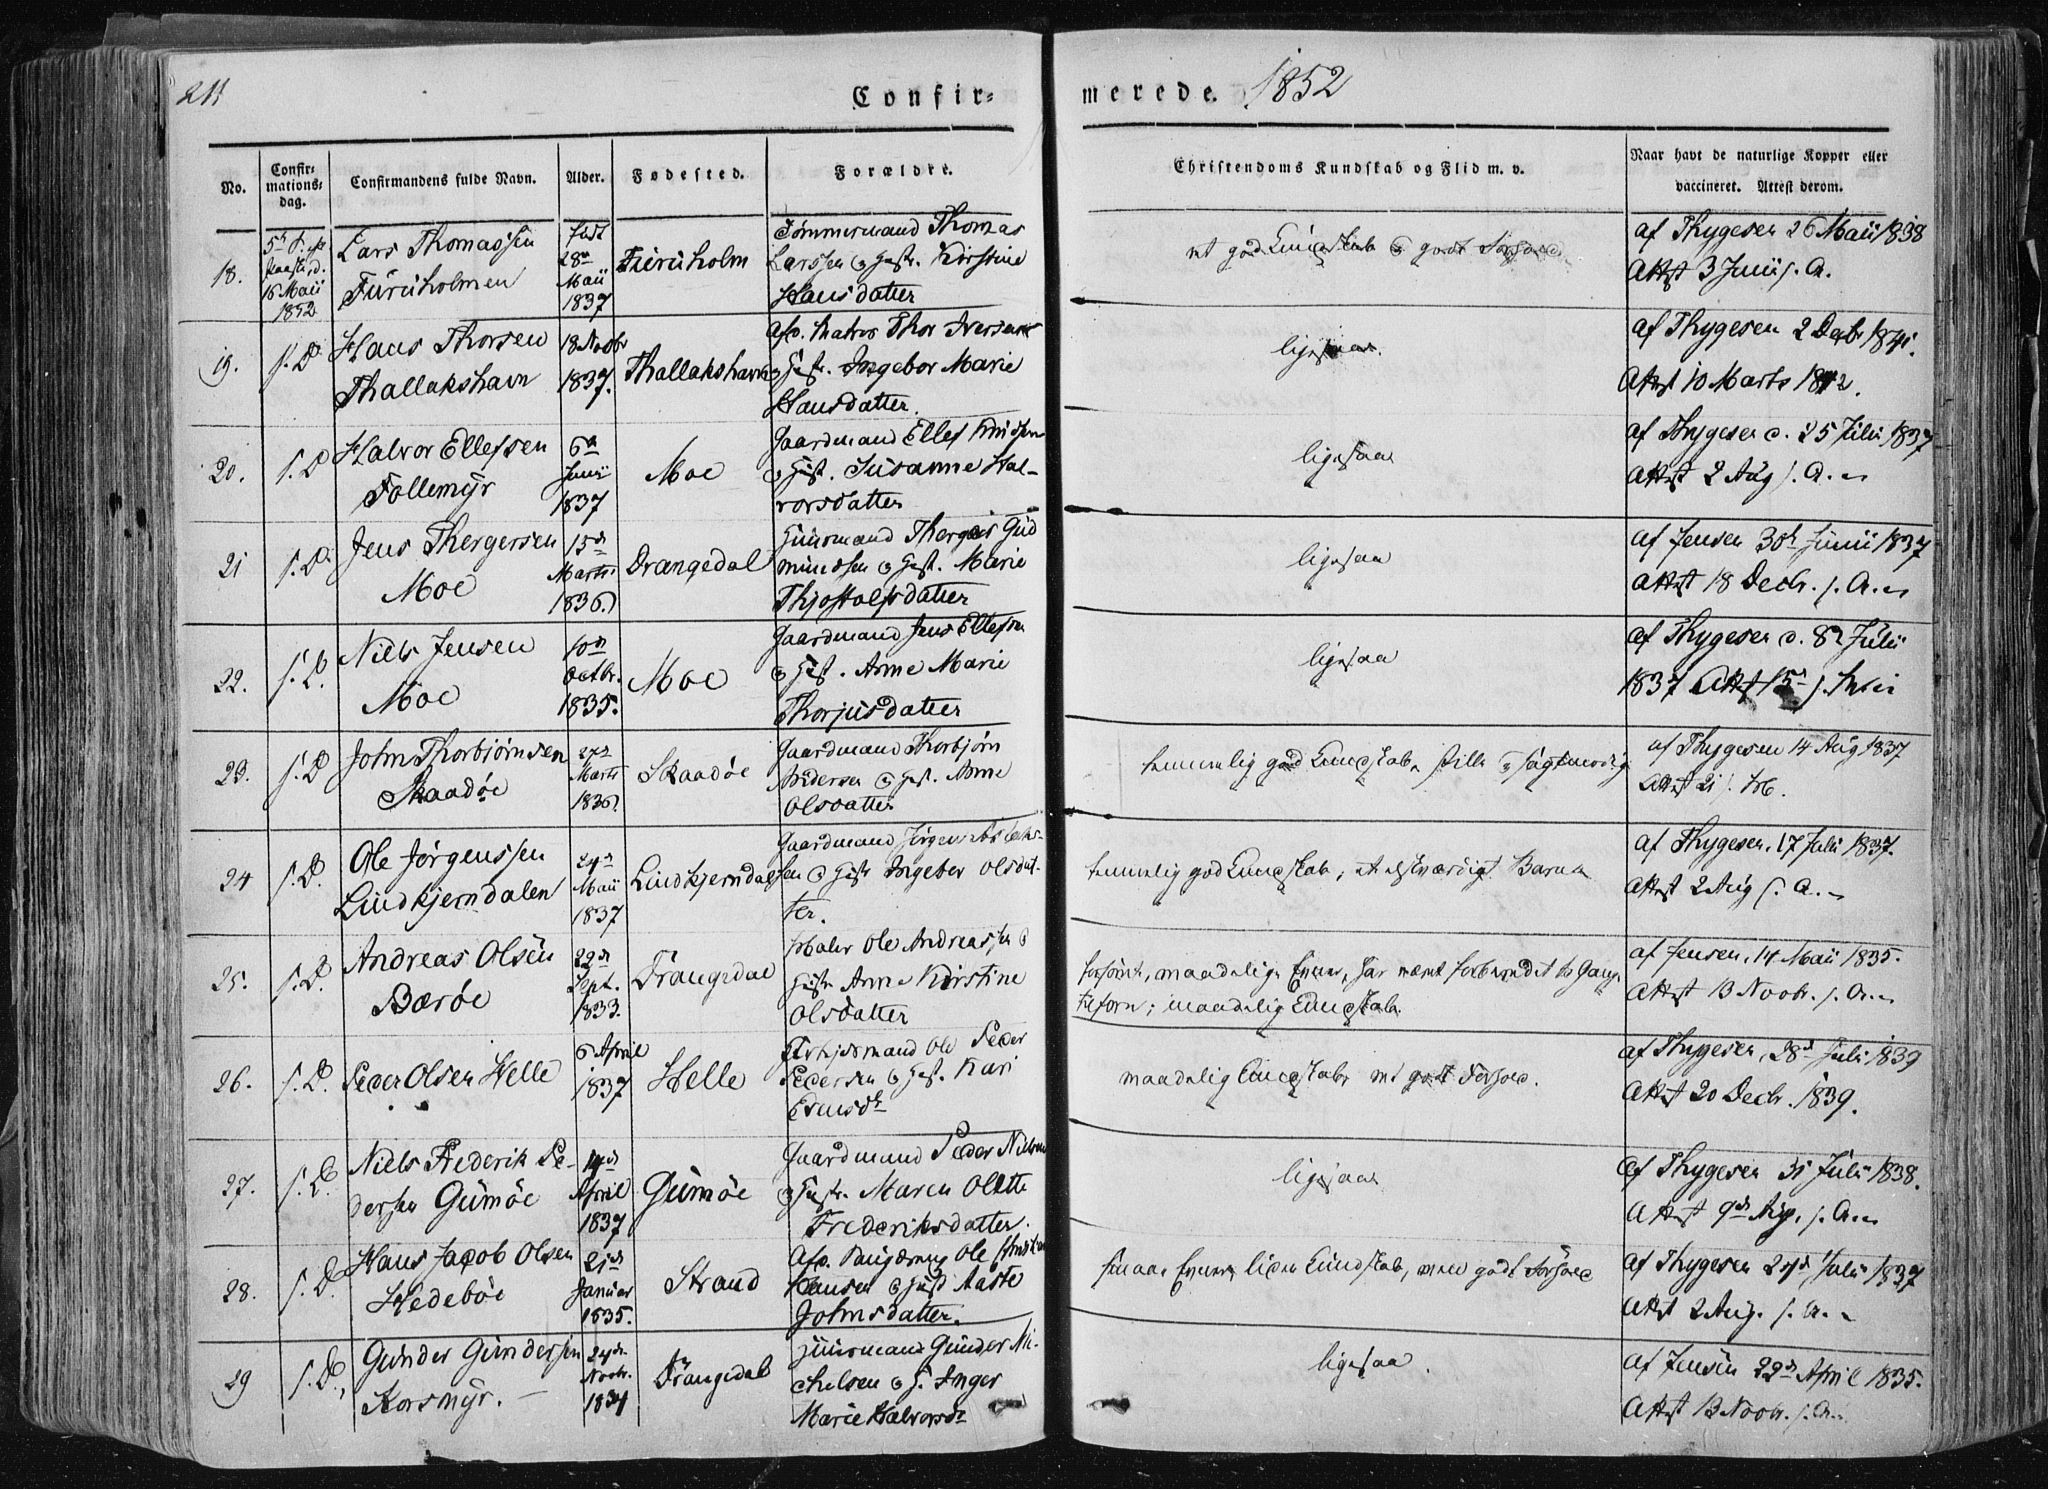 211
Confir-
merede. 1852
No.
Confir-
mations-
dag.
Confirmandens fulde Navn.
Alder.
Fødested.
Forældre.
Christendoms Kundskab og Flid m. v.
Naar havt de naturlige Kopper eller
vaccineret. Attest derom.
18.
16 Maii
1852
Lars Thomassen
Furuholmen
født
28de
Maii
1837
Furuholm
Tømmermand Thomas
Larssen og Hustr. Kirstine
Hansdatter
god Kundskab og godt Forhold
af Thygesen 26 Maii 1838
Attest 3 Junii s. A.
19.
s. D.
Hans Thorsen
Thallakshavn
18 Novbr
1837.
Thallakshavn
afd. Matros Thor Iversen
og Hustr. Ingebor Marie
Hansdatter.
ligesaa.
af Thygesen 2 Decbr 1841.
Attest 10 Marts 1842.
20.
s. D
Halvor Ellefsen
Tollemyr
6te
Junii
1837
Moe
Gaardmand Ellef Knudsen
og Hustr. Susanne Hal-
vorsdatter
ligesaa
af Thygesen d. 25 Julii 1837
Attest 2 Aug s. A.
21
s. D.
Jens Thergersen
Moe
15de
Marts
1836.
Drangedal
Huusmand Thergeis Gud
mundsen og Hustr. Marie
Thjostolfsdatter
ligesaa
af Jensen 30te Junii 1837
Attest 18 Decbr. s. A.
22.
s. D.
Niels Jensen
Moe
10de
Octbr.
1835.
Moe
Gaardmand Jens Ellefsen
og Hustr. Anne Marie
Thorjusdatter
ligesaa
af Thygesen d. 8de Julii
1837 Attest 15de s.
23.
s. D
John Thorbjørnsen
Skaadøe
27de
Marts
1836.
Skaadøe
Gaardmand Thorbjørn
Andersen og Hustr. Anne
Olsdatter
temmelig god Kundskab, stille og sagtmodig
af Thygesen 14 Aug 1837
Attest 21 s. M.
24
s. D.
Ole Jørgenssen
Lindkjerndalen
24de
Maii
1837
Lindkjerndal
Gaardmand Jørgen
sen og Hustr Ingebor Olsdat-
ter.
temmelig god Kundskab, et elskværdigt Barn
af Thygesen, 17 Julii 1837.
Attest 2 Aug s. A.
25.
s. D.
Andreas Olsen
Bærøe
22de
Sept.
1833.
Drangedal
Maler Ole Andreassen og
Hustr Anne Kirstine
Olsdatter
forsømt, maadelige Evner, har været forberedet to Gange
tilforn; maadelig Kundskab.
af Jensen, 14 Maii 1835.
Attest 13 Novbr. s. A.
26.
s. D.
Peder Olsen Helle
6 April
1837
Helle
Ole Peder
Pedersen og Hustr. Kari
maadelig Kundskab, godt Forhold.
af Thygesen, 28de Julii 1839
Attest 20 Decbr. 1839.
27.
s. D.
Niels Frederik Pe-
dersen Gumøe
14de
April
1837
Gumøe
Gaardmand Peder Nielsen
og Hustr. Maren Olette
Frederiksdatter.
ligesaa
af Thygesen 31 Julii 1838.
Attest 9de Aug. s. A.
28.
s. D.
Hans Jacob Olsen
Hedebøe
21de
Januar
1835.
Strand
afd. Ole
Hansen og Hustr Aaste
Johnsdatter.
smaae Evner, liden Kundskab, men godt Forhold
af Thygesen 24de Julii 1837
Attest 2 Aug. s. A.
29
s. D.
Gunder Gundersen
Korsmyr.
24de
Novbr.
1834
Drangedal
Huusmand Gunder Mi-
chelsen og H. Inger
Marie Halvorsdr
ligesaa.
af Jensen 22de April 1835.
Attest 13 Novbr. s. A.